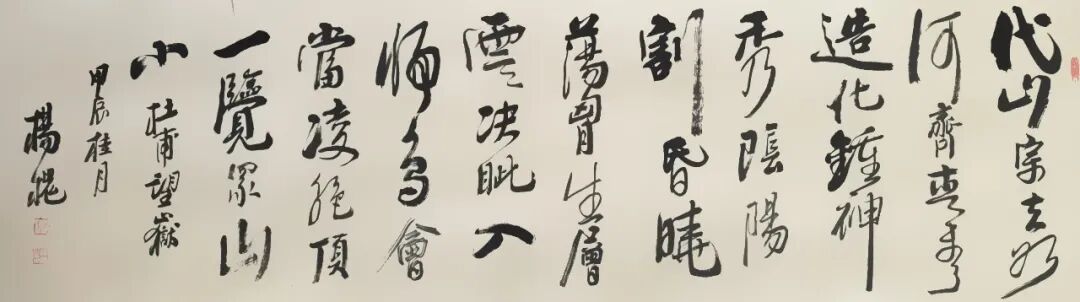 岱宗夫如
何齊青未了
造化鍾神
秀陰陽
割昏曉
蕩胷生層
雲决眦入
歸鳥會
當凌絶頂
一覽眾山
小 杜甫望嶽
甲辰桂月
楊